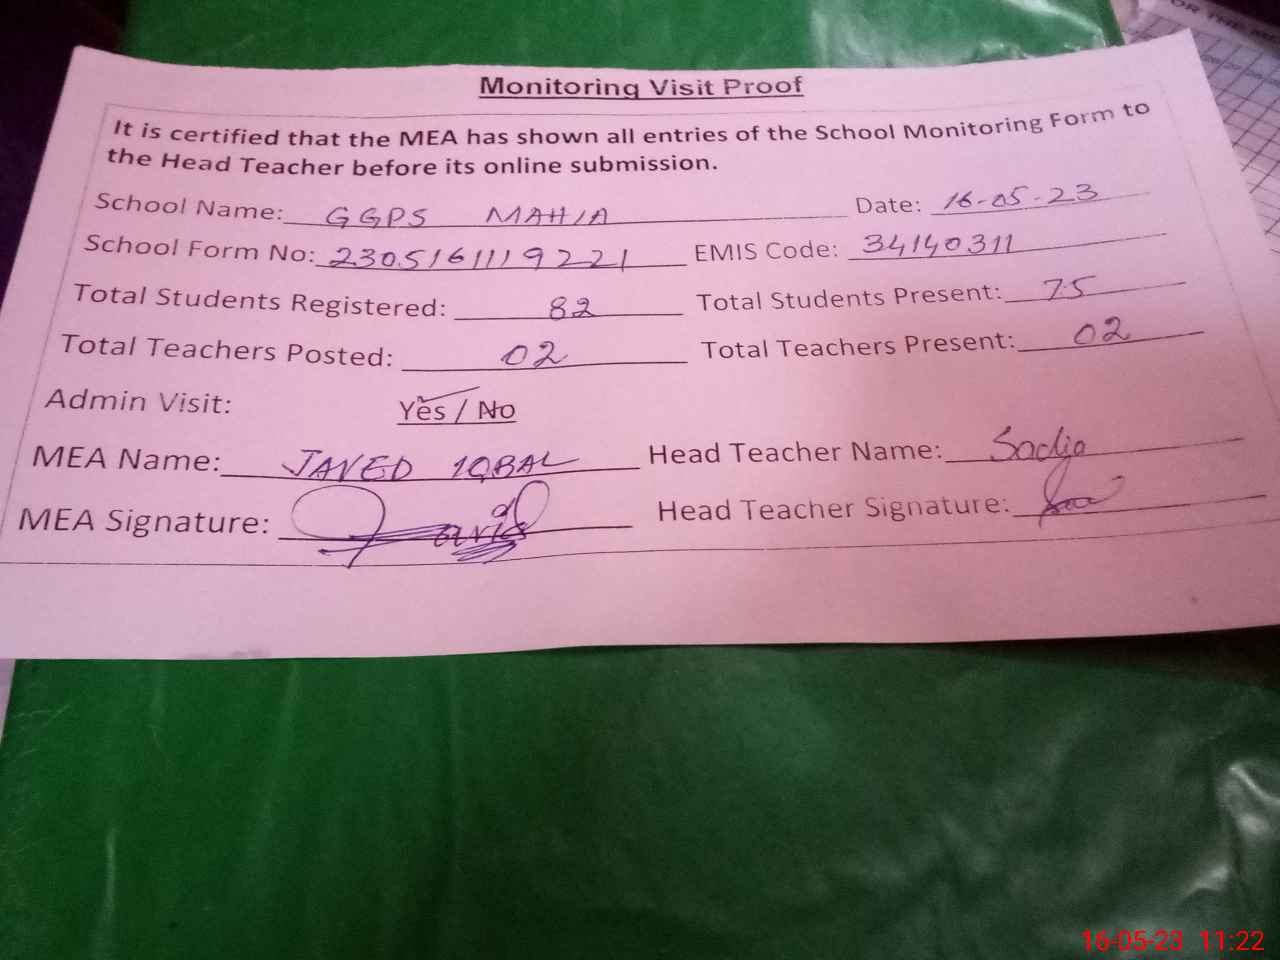 Monitoring Visit Proof
It is certified that the MEA has shown all entries of the School Monitoring Form to
the Head Teacher before its online submission.
School Name: GGPS MAHIA Date: 16-05-23
School Form No: 2305161119221 EMIS Code: 34140311
Total Students Registered: 82 Total Students Present: 75
Total Teachers Posted: 02 Total Teachers Present: 02
Admin Visit: Yes / No
MEA Name: JAVED IQBAL Head Teacher Name: Sadia
MEA Signature: Head Teacher Signature:
16-05-23 11:22